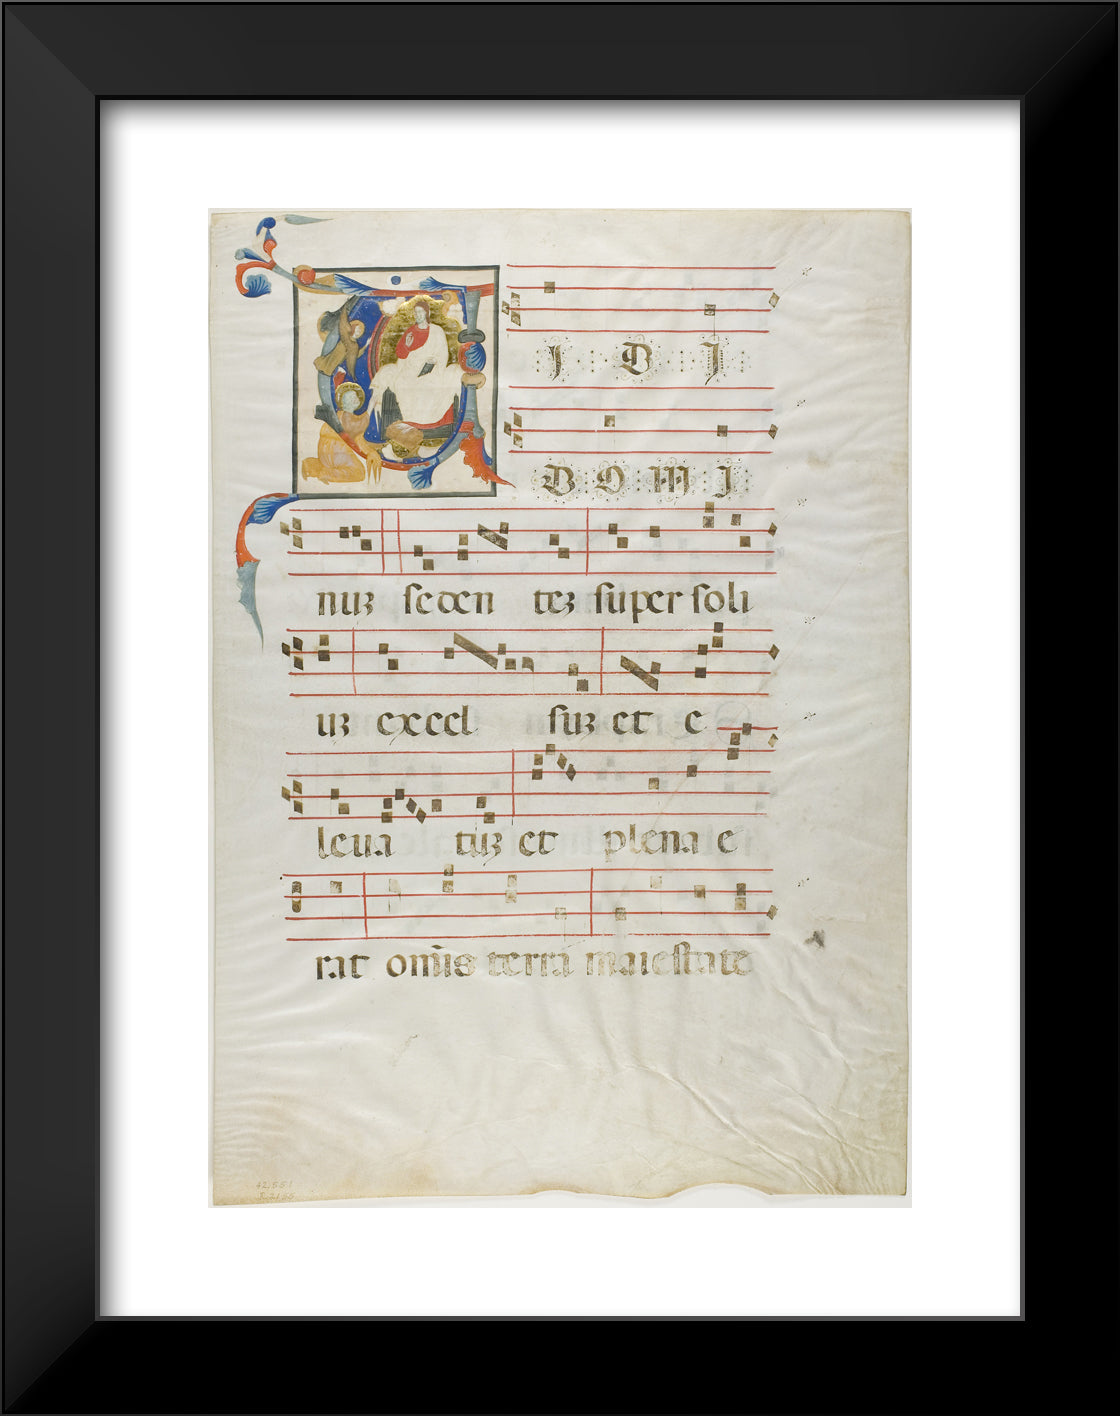 V I D I
D O M I
nuz seden tez super soli
uz excel suz et e
leva tuz et plena e
rat om̄is terra maiestate
42.551